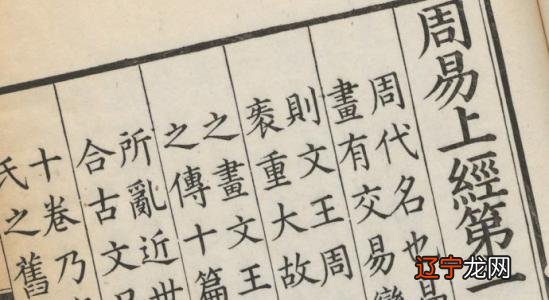 周易上經第一
周代名也易
畫有交易變
則文王周
袠重大故
之畫文王
之傳十篇
所亂近世
合古文呂
十卷乃
氏之舊
辽宁龙网